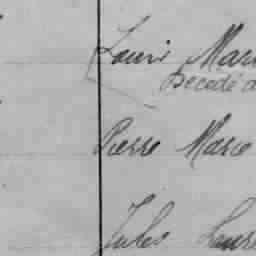 Louis Mari
Décédé a
Pierre Marie
Jules Laur